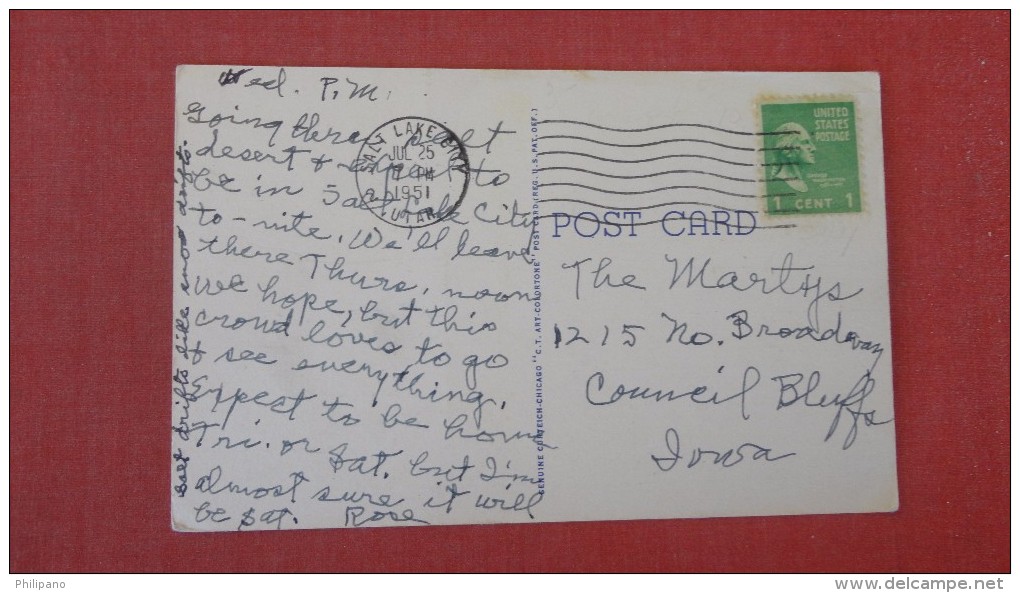 Wed. P.M.
Going thru salt
desert & expect to
be in Salt Lake City
to-nite. We'll leave
there Thurs. noon
we hope, but this
crowd loves to go
& see everything.
Expect to be home
Fri. or Sat. but I'm
almost sure it will
be Sat. Rose
Salt drifts like snow drifts.
SALT LAKE CITY
JUL 25
PM
1951
UTAH
GENUINE CURTEICH-CHICAGO "C.T. ART-COLORTONE" POST CARD (REG. U.S. PAT. OFF.)
UNITED
STATES
POSTAGE
1 CENT 1
POST CARD
The Martys
1215 No. Broadway
Council Bluffs
Iowa
Philipano
www.delcampe.net